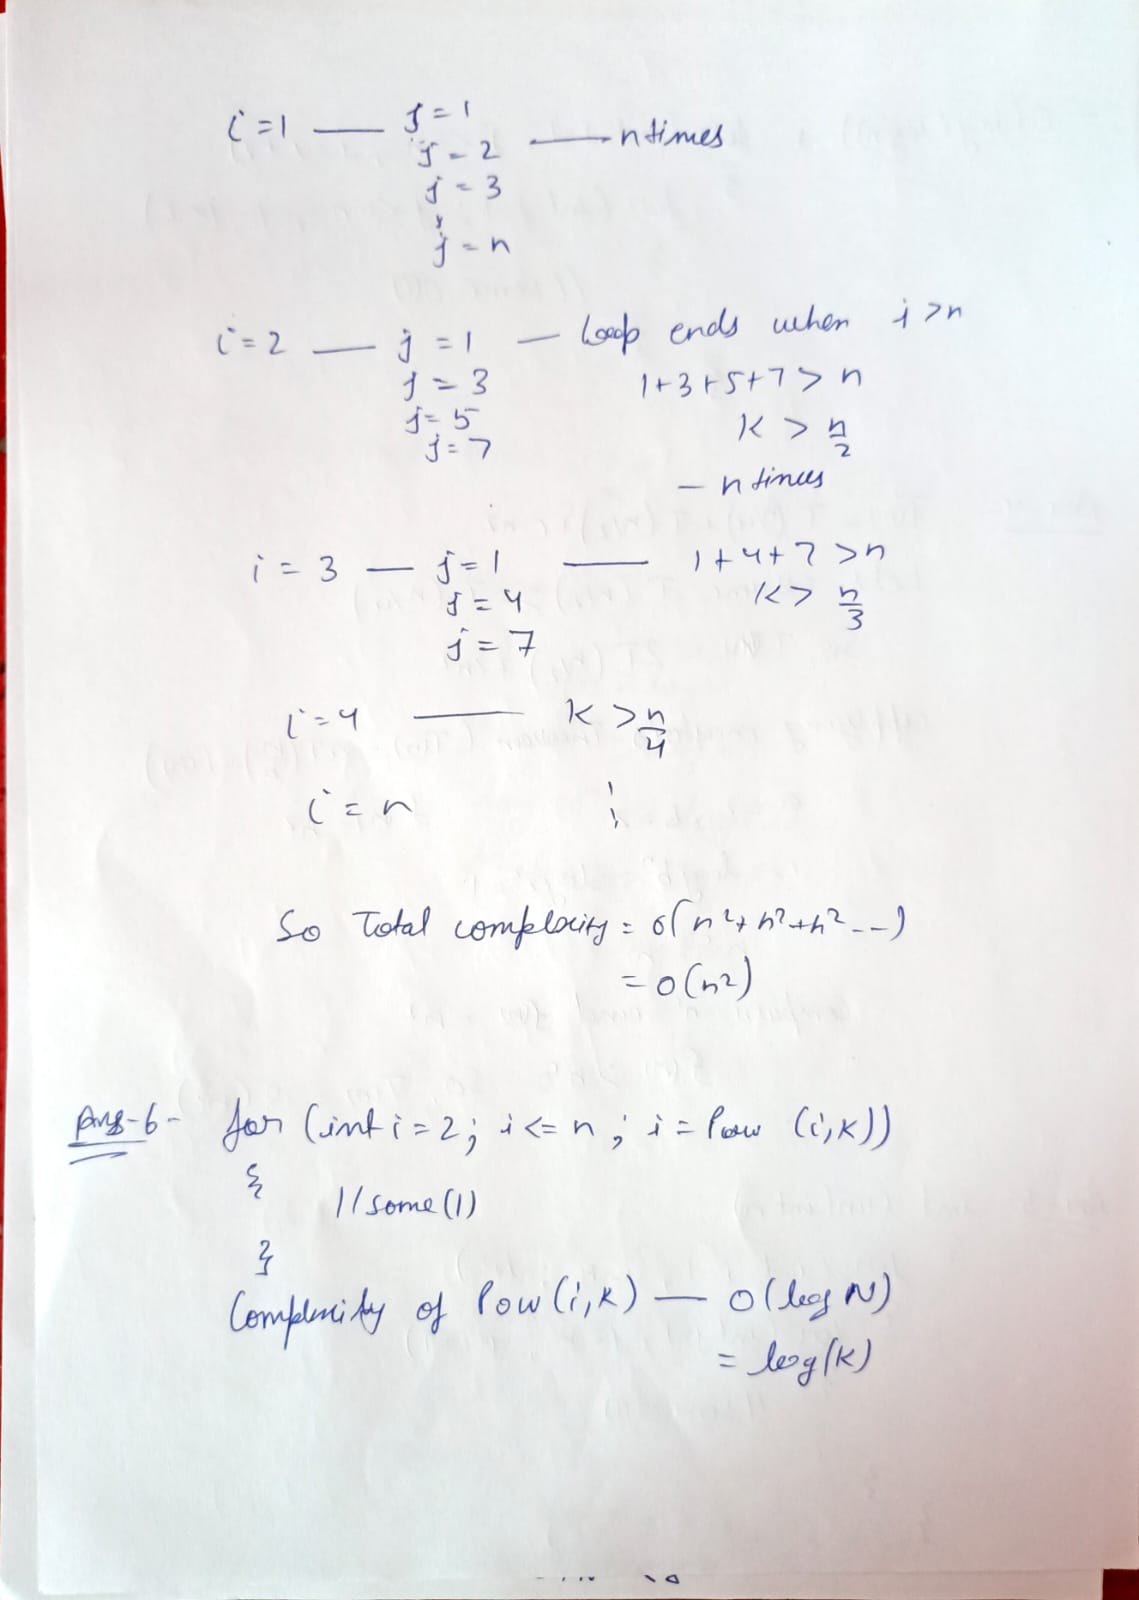 i=1 — j=1
j=2 — n times
j=3
j=n
i=2 — j=1 — loop ends when j>n
j=3 1+3+5+7>n
j=5 K > n/2
j=7
— n times
i=3 — j=1 — 1+4+7>n
j=4 K> n/3
j=7
i=4 — K > n/4
i=n
So Total complexity = O(n²+n²+n²--)
= O(n²)
Ans-6- for (int i=2; i<=n; i=Pow (i,K))
{
//some(1)
}
Complexity of Pow(i,K) — O(log N)
= log(K)